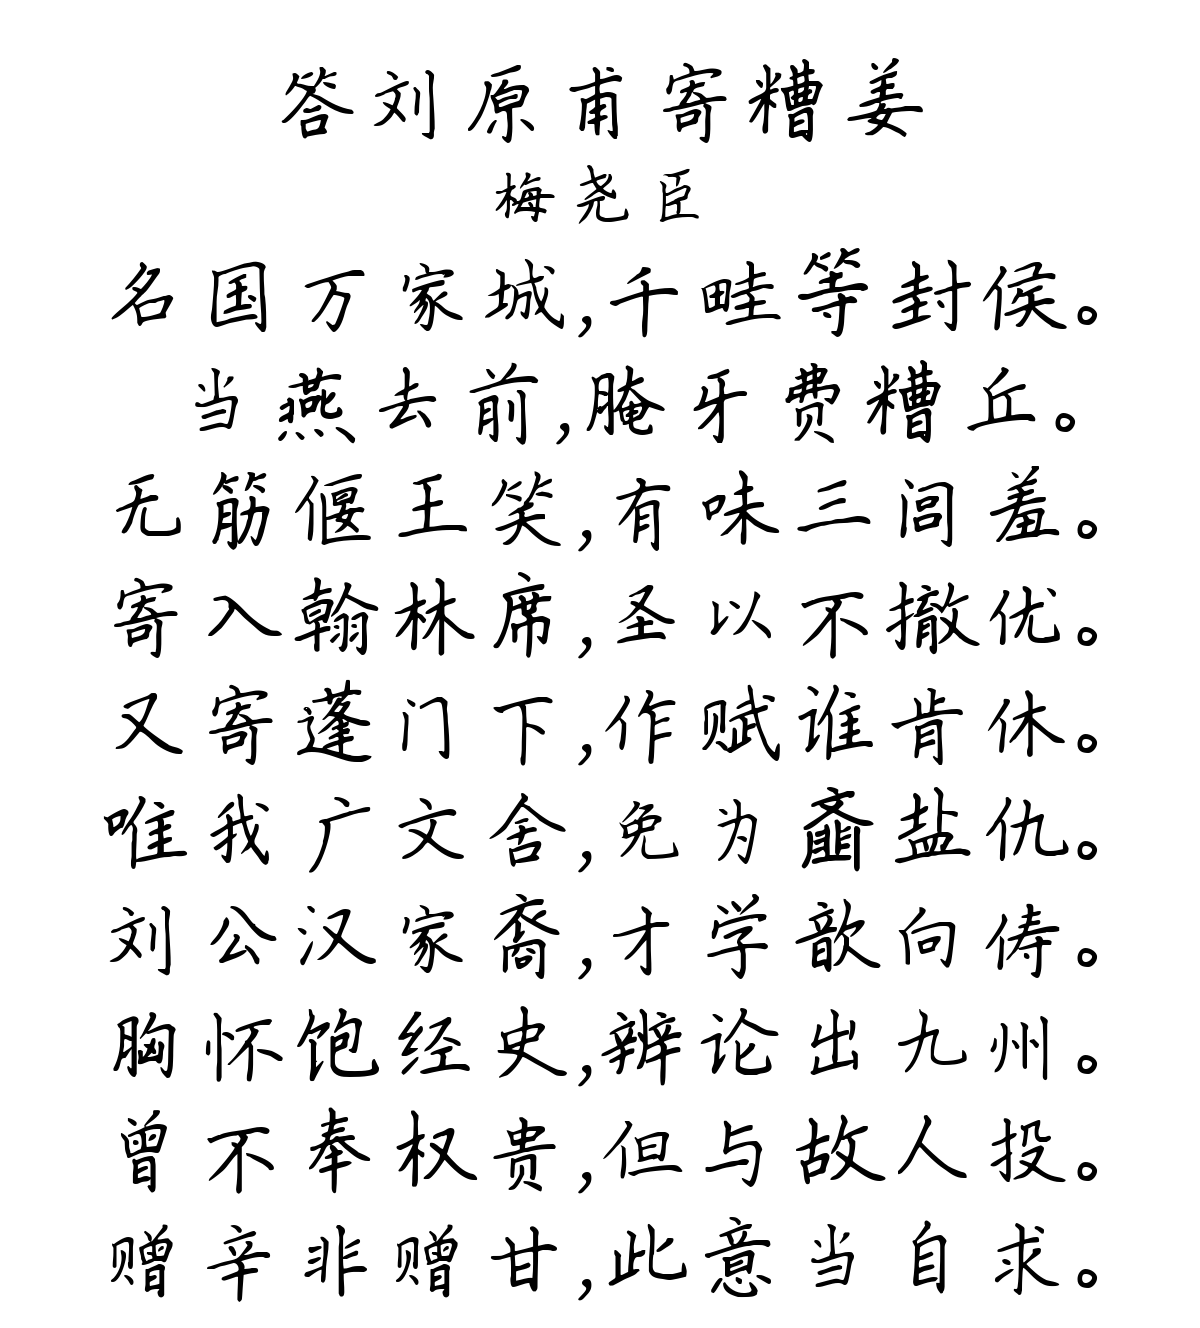 答刘原甫寄糟姜
梅尧臣
名国万家城,千畦等封侯。
当燕去前,腌牙费糟丘。
无筋偃王笑,有味三闾羞。
寄入翰林席,圣以不撤优。
又寄蓬门下,作赋谁肯休。
唯我广文舍,免为齑盐仇。
刘公汉家裔,才学歆向俦。
胸怀饱经史,辨论出九州。
曾不奉权贵,但与故人投。
赠辛非赠甘,此意当自求。